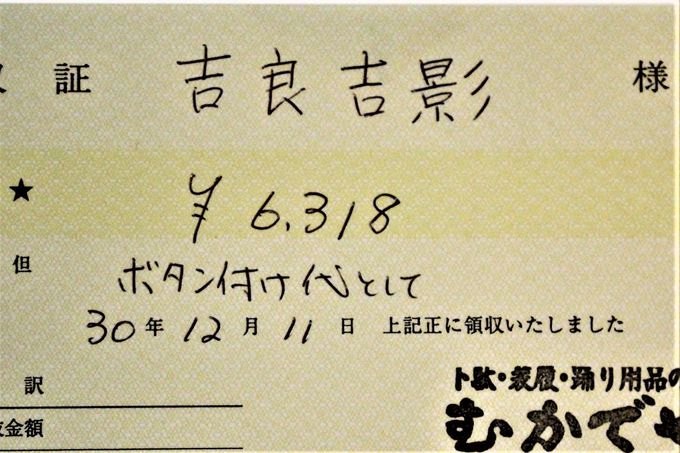 証 吉良吉影 様
★ ¥6,318
但 ボタン付け代として
30年12月11日 上記正に領収いたしました
訳
金額
下駄・草履・踊り用品の
むかで